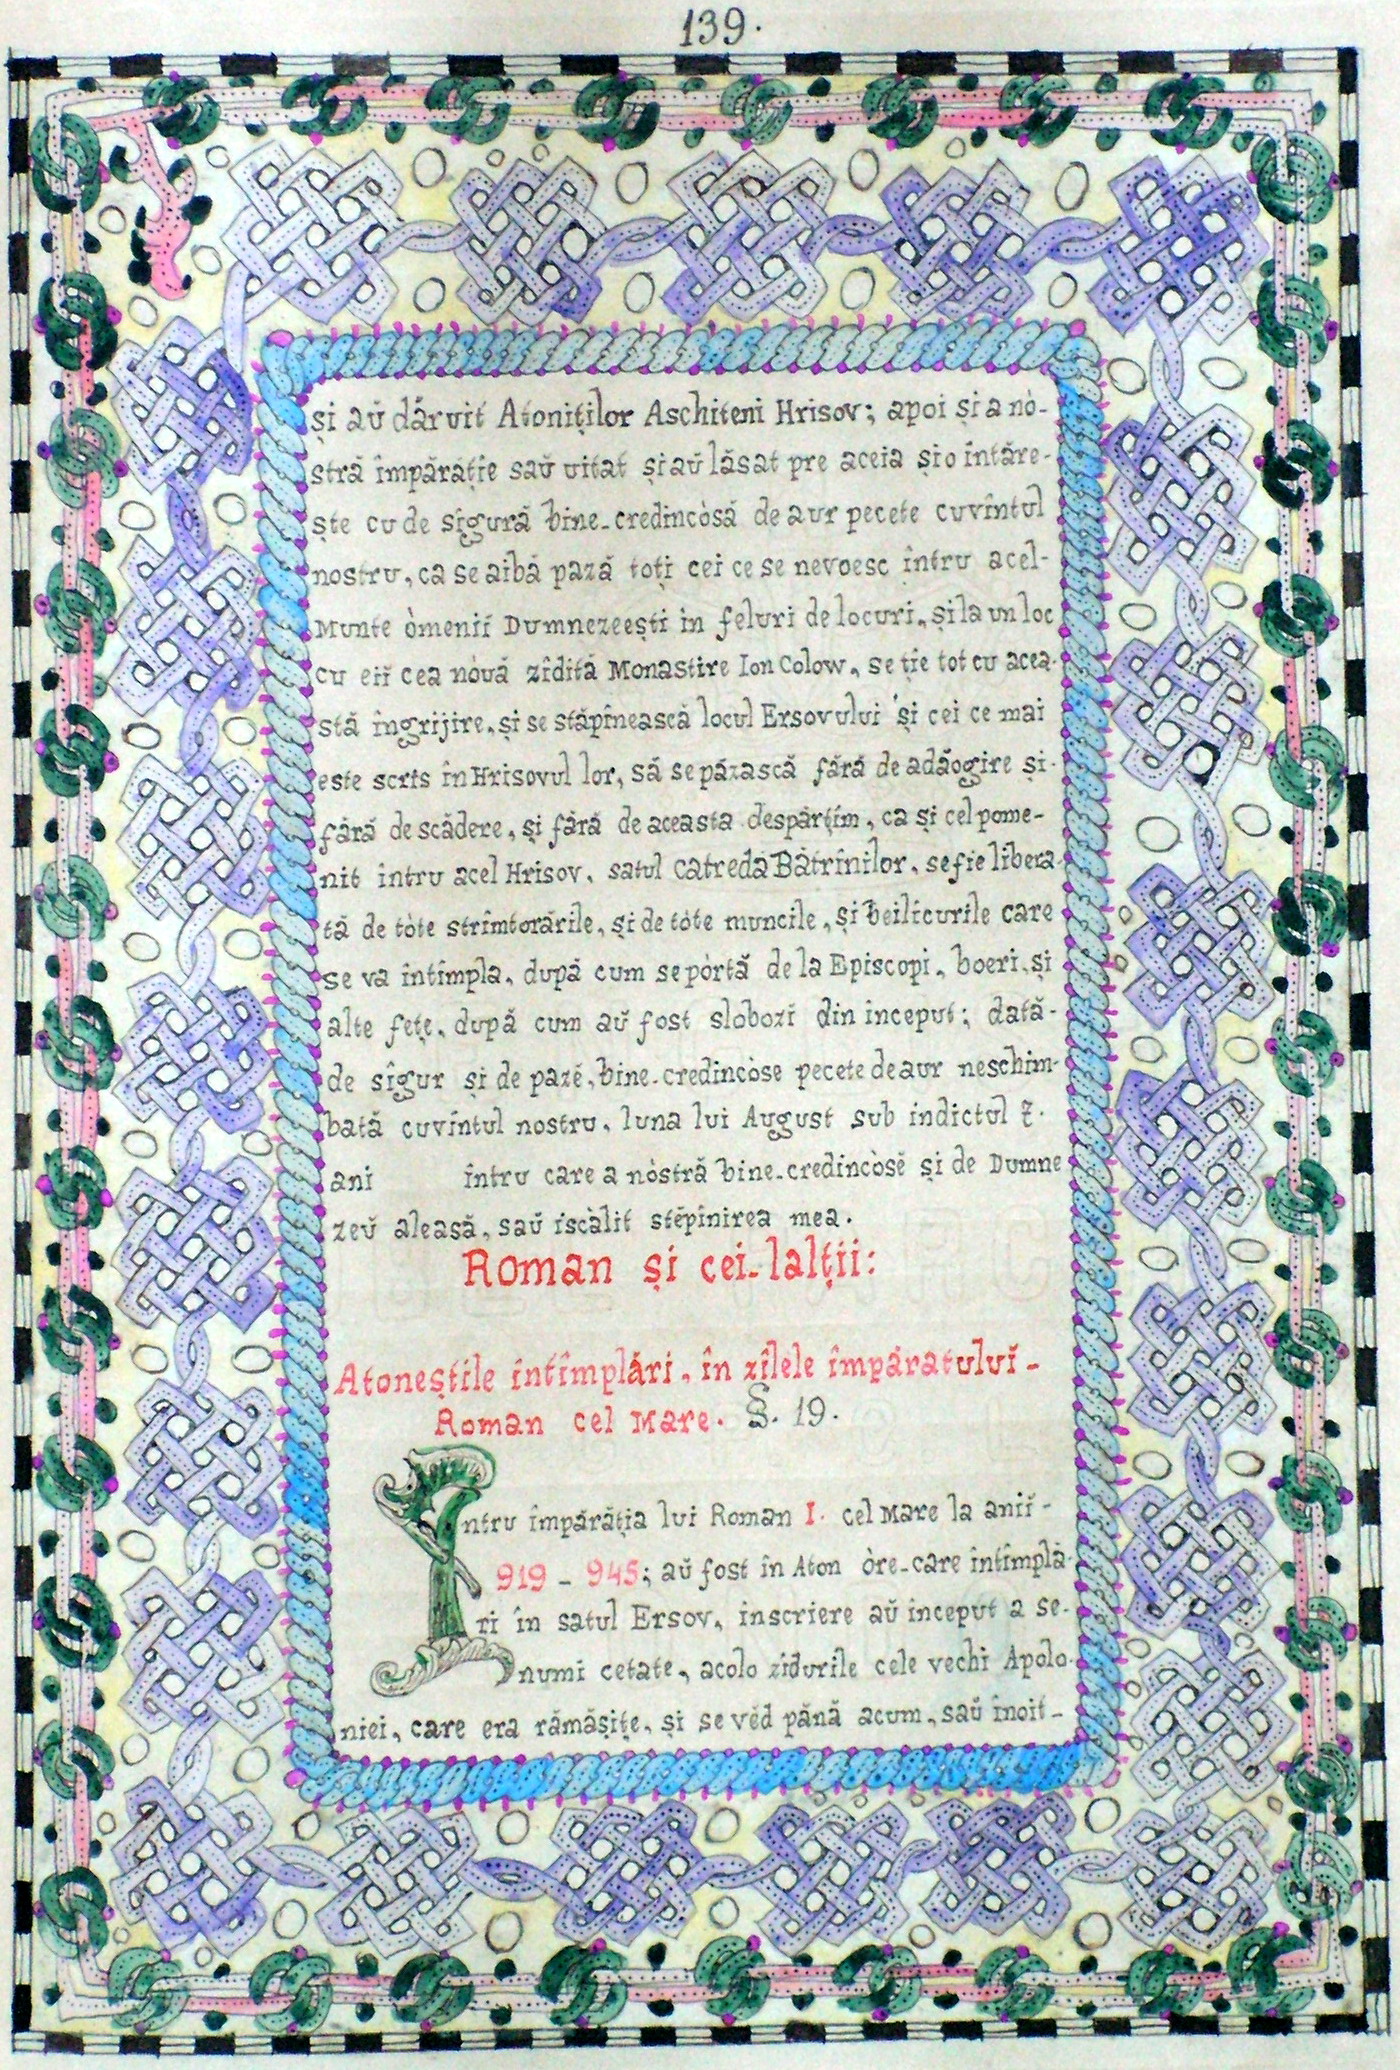 139.
și aŭ dăruit Atoniților Aschiteni Hrisov; apoi și a nò-
stră împărație saŭ uitat și aŭ lăsat pre aceia și o întăre-
ște cu de sigură bine-credincòsă de aur pecete cuvîntul
nostru, ca se aibă pază toți cei ce se nevoesc întru acel-
Munte òmenii Dumnezeești in feluri de locuri, și la un loc
cu eii cea nòuă zîdită Monastire Ion Colow, se ție tot cu acea-
stă îngrijire, și se stăpînească locul Ersovului și cei ce mai
este scris în Hrisovul lor, să se păzască fără de adăogire și-
fără de scădere, și fără de aceasta despărțim, ca și cel pome-
nit intru acel Hrisov, satul Catreda Bătrînilor, se fie libera-
tă de tòte strîmtorările, și de tòte muncile, și beilicurile care
se va întîmpla, după cum se pòrtă de la Episcopi, boeri, și
alte fețe, după cum aŭ fost slobozi din inceput; dată-
de sigur și de pază, bine-credincòse pecete de aur neschim-
bată cuvîntul nostru, luna lui August sub indictul 7.
ani întru care a nòstră bine-credincòsĕ și de Dumne
zeŭ aleasă, saŭ iscălit stĕpînirea mea.
Roman și cei-lalții:
Atoneștile întîmplări, în zîlele împăratuluĭ-
Roman cel Mare. §. 19.
Intru împărăția lui Roman I. cel Mare la aniĭ-
919 - 945; aŭ fost în Aton òre-care întîmplă-
ri în satul Ersov, inscriere aŭ inceput a se-
numi cetate, acolo zidurile cele vechi Apolo-
niei, care era rămășițe, și se vĕd până acum, saŭ inoit-